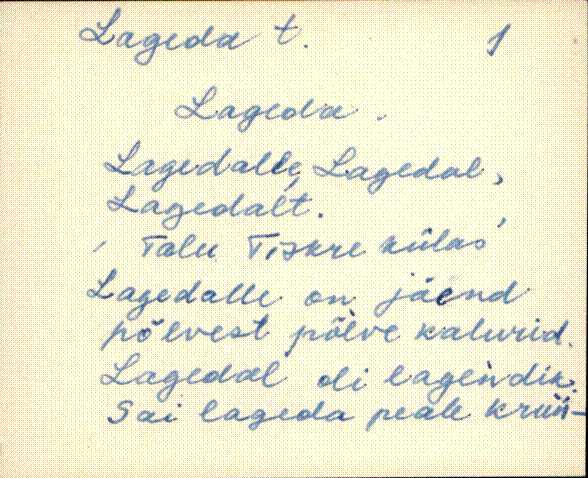 Lageda t. 1
Lageda.
Lagedalle, Lagedal,
Lagedalt.
' Talu Tiskre külas'
Lagedalle on jäend
põlvest põlve kalurid.
Lagedal oli lagendik.
Sai lageda peale krun-